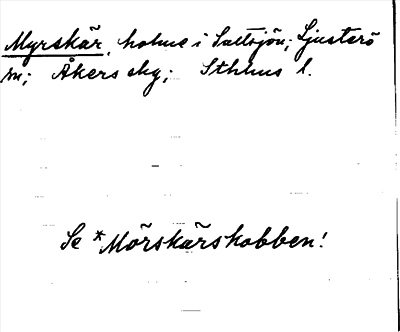 Myrskär, holme i Saltsjön; Ljusterö
sn; Åkers skg; Sthlms l.
Se *Mörskärskobben!